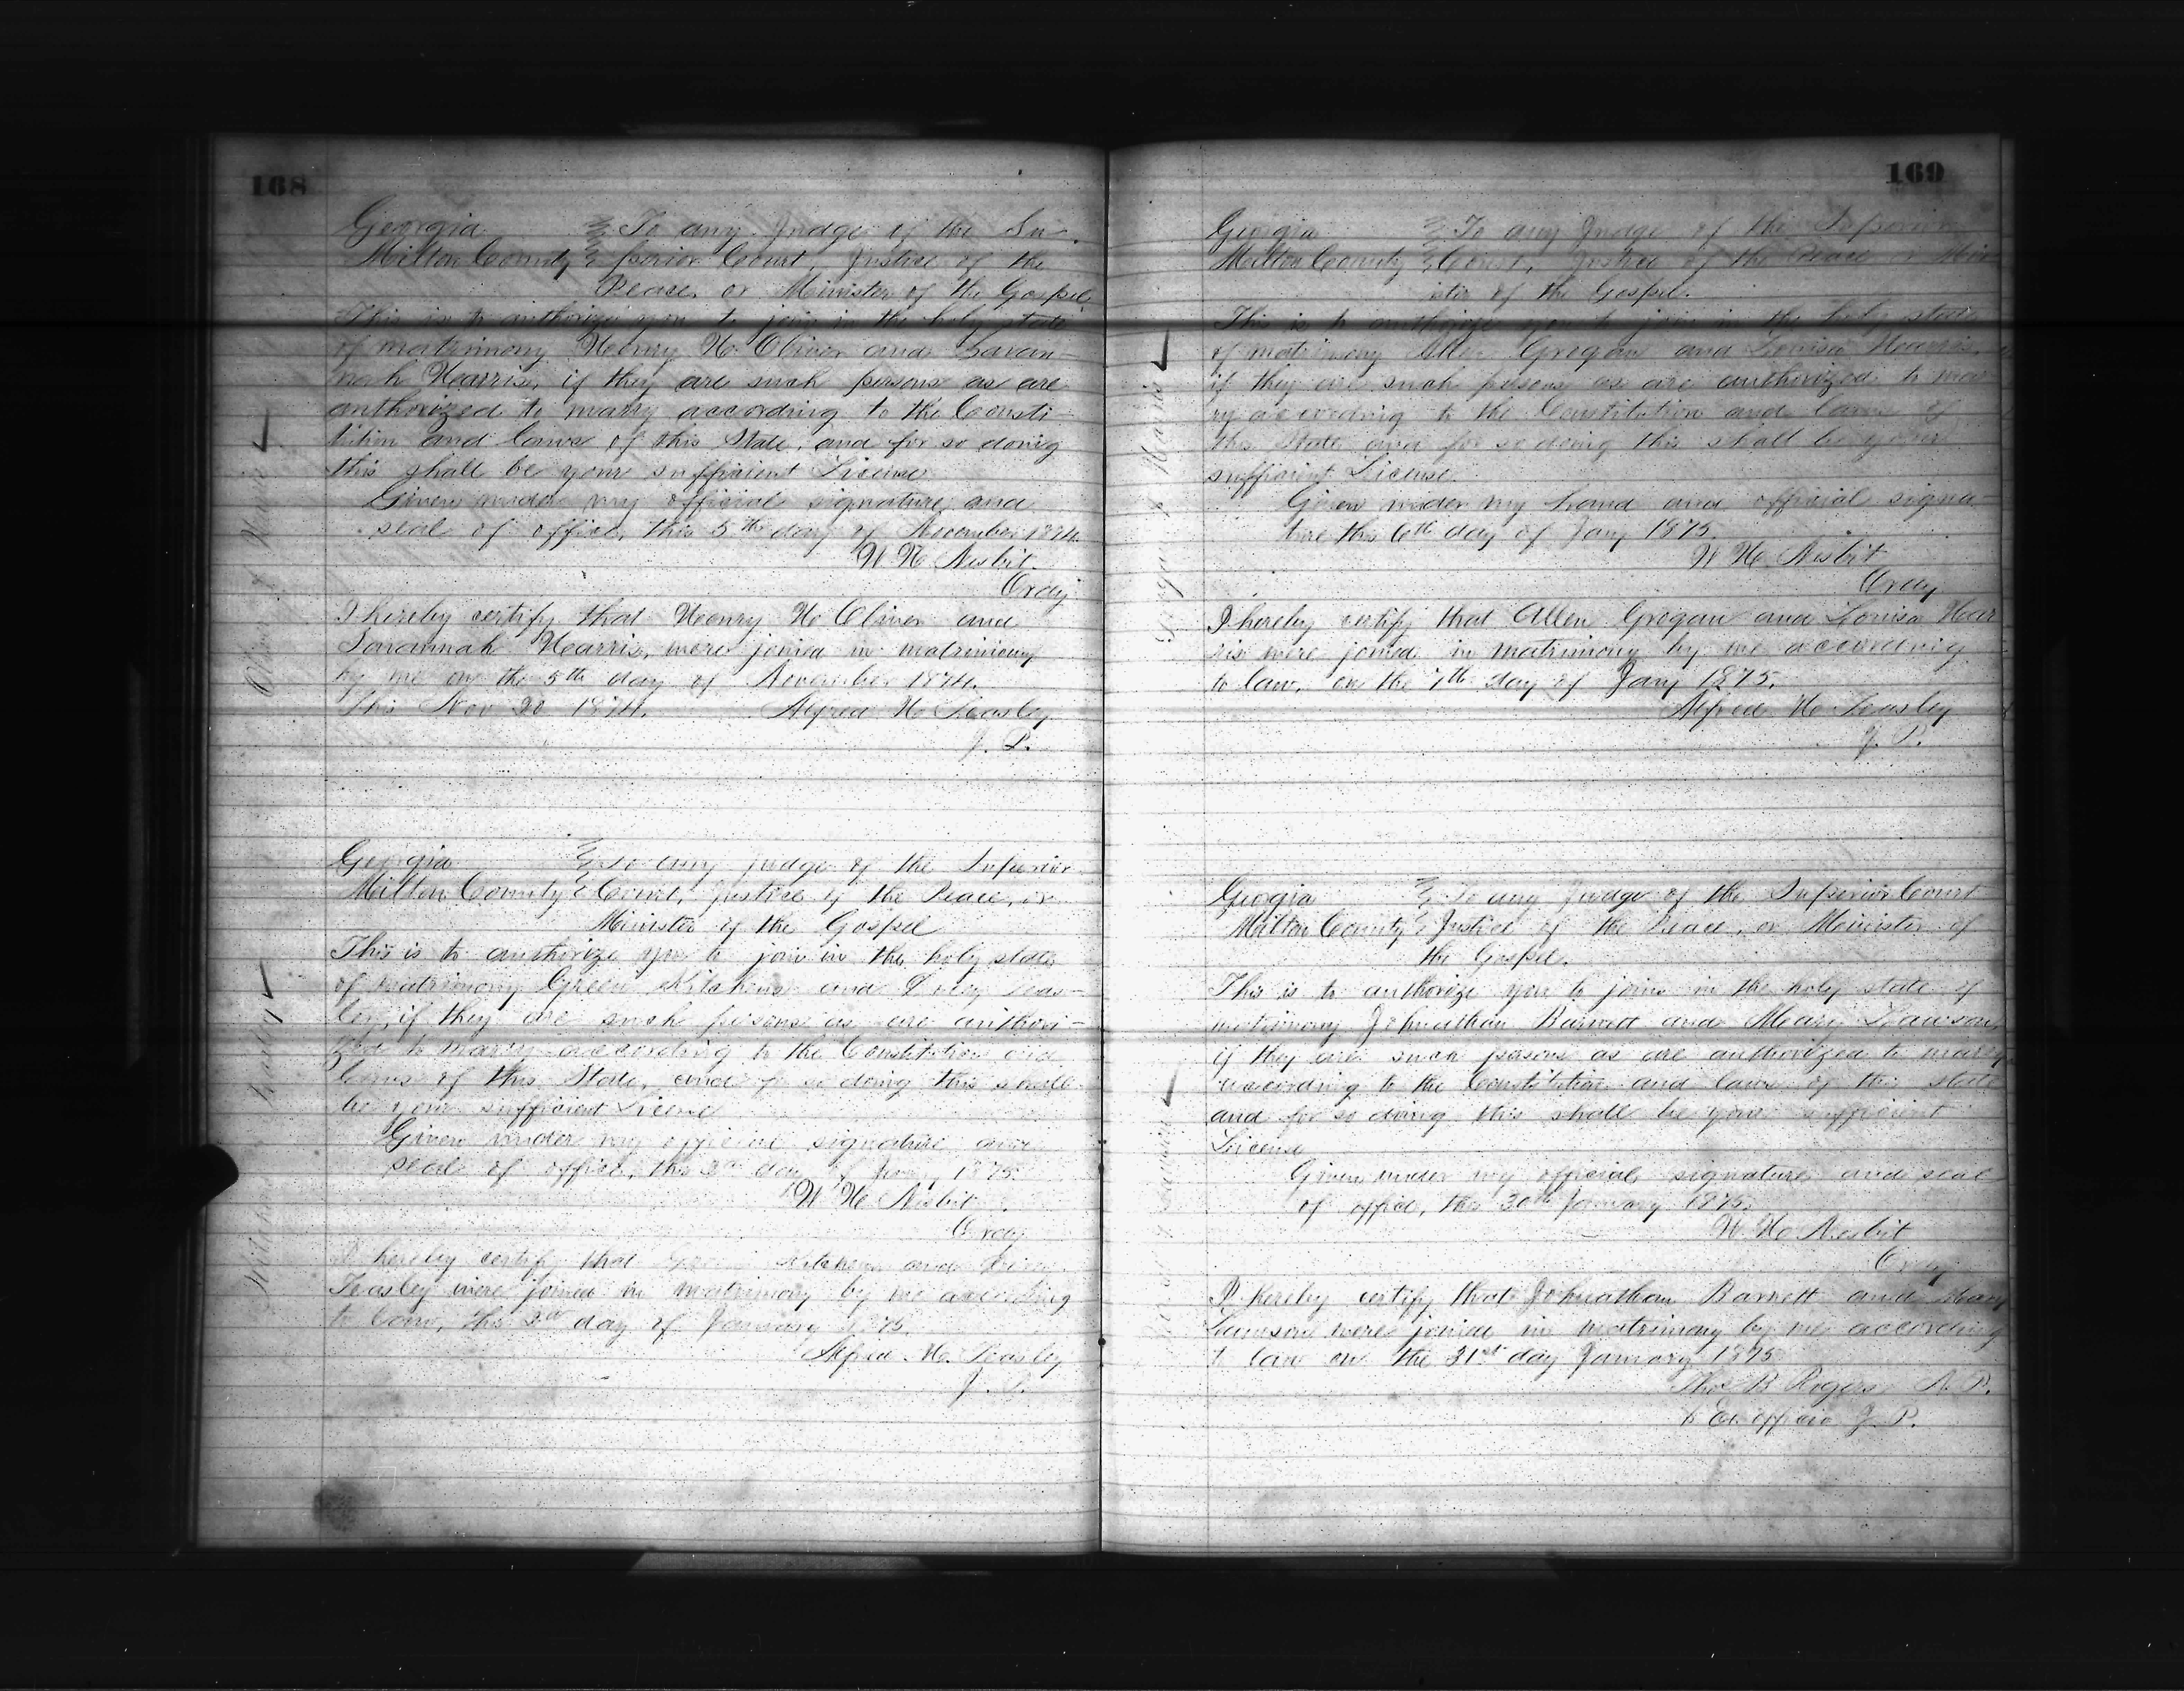 168
Georgia } To any Judge of the Su-
Milton County } perior Court, Justice of the
Peace, or Minister of the Gospel
This is to authorize you to join in the holy state
of matrimony Henry H. Oliver and Savan-
nah Harris, if they are such persons as are
authorized to marry according to the Consti-
tution and laws of this State, and for so doing
this shall be your sufficient License
Given under my official signature and
seal of office, this 5th day of November 1874.
W H Nesbit
Ordy
I hereby certify that Henry H Oliver and
Savannah Harris, were joined in matrimony
by me on the 5th day of November 1874.
This Nov 20 1874. Alfred H Teasley
J. P.
Oliver & Harris
Georgia } To any Judge of the Superior
Milton County } Court, Justice of the Peace, or
Minister of the Gospel
This is to authorize you to join in the holy state
of matrimony Green Kitchens and Teas-
ley, if they are such persons as are authori-
zed to marry according to the Constitution and
laws of this State, and for so doing this shall
be your sufficient License
Given under my official signature and
seal of office, this day of Jany 1875.
W H Nesbit
Ordy
I hereby certify that Green Kitchens and
Teasley were joined in matrimony by me according
to law, this day of January 1875.
Alfred H. Teasley
J. P.
169
Georgia } To any Judge of the Superior
Milton County } Court, Justice of the Peace or Min-
ister of the Gospel.
This is to authorize you to join in the holy state
of matrimony Allen Grogan and Louisa Harris,
if they are such persons as are authorized to mar-
ry according to the Constitution and laws of
this State and for so doing this shall be your
sufficient License.
Given under my hand and official signa-
ture this 6th day of Jany 1875.
W H Nesbit
Ordy
I hereby certify that Allen Grogan and Louisa Har
ris were joined in matrimony by me according
to law, on the 7th day of Jany 1875.
Alfred H Teasley
J. P.
Grogan & Harris
Georgia } To any Judge of the Superior Court
Milton County } Justice of the Peace, or Minister of
the Gospel.
This is to authorize you to join in the holy state of
matrimony Johnathan Barnett and Mary Lawson,
if they are such persons as are authorized to marry
according to the Constitution and laws of this state
and for so doing this shall be your sufficient
License
Given under my official signature and seal
of office, this 30th January 1875.
W. H. Nesbit
Ordy
I hereby certify that Johnathan Barnett and Mary
Lawson were joined in matrimony by me according
to law on the 31st day January 1875
Thos B Rogers N. P.
& Ex officio J. P.